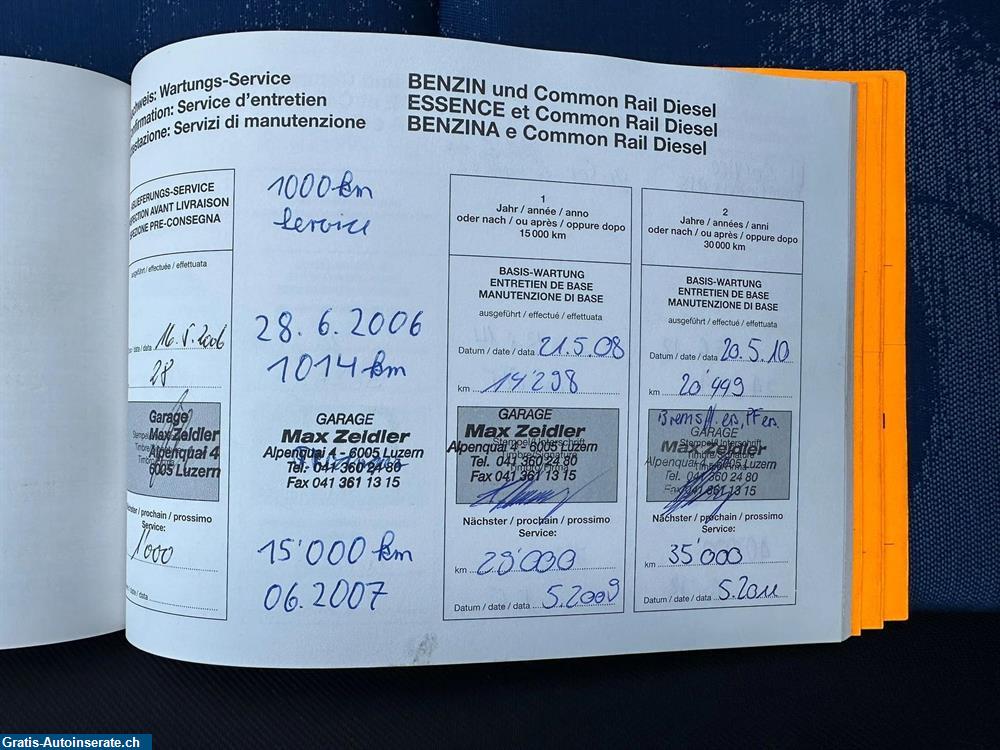 chweis: Wartungs-Service
nfirmation: Service d'entretien
estazione: Servizi di manutenzione
BENZIN und Common Rail Diesel
ESSENCE et Common Rail Diesel
BENZINA e Common Rail Diesel
LIEFERUNGS-SERVICE
PECTION AVANT LIVRAISON
EZIONE PRE-CONSEGNA
ausgeführt / effectuée / effettuata
date / data 16.5.2006
28
Garage
Max Zeidler
Alpenquai 4
6005 Luzern
ster / prochain / prossimo
Service:
1'000
date / data
1000 km
Service
28.6.2006
1014 km
GARAGE
Max Zeidler
Alpenquai 4 - 6005 Luzern
Tel. 041 360 24 80
Fax 041 361 13 15
15'000 km
06.2007
1
Jahr / année / anno
oder nach / ou après / oppure dopo
15 000 km
BASIS-WARTUNG
ENTRETIEN DE BASE
MANUTENZIONE DI BASE
ausgeführt / effectué / effettuata
Datum / date / data 21.5.08
km 14'298
GARAGE
Max Zeidler
Stempel/Unterschrift
Alpenquai 4 - 6005 Luzern
Timbre/Signature
Tel. 041 360 24 80
Timbro/Firma
Fax 041 361 13 15
Nächster / prochain / prossimo
Service:
km 29'000
Datum / date / data 5.2009
2
Jahre / années / anni
oder nach / ou après / oppure dopo
30 000 km
BASIS-WARTUNG
ENTRETIEN DE BASE
MANUTENZIONE DI BASE
ausgeführt / effectué / effettuata
Datum / date / data 20.5.10
km 20'449
GARAGE
Stempel/Unterschrift
Max Zeidler
Timbre/Signature
Alpenquai 4 - 6005 Luzern
Timbro/Firma
Tel. 041 360 24 80
Fax 041 361 13 15
Nächster / prochain / prossimo
Service:
km 35'000
Datum / date / data 5.2011
Gratis-Autoinserate.ch